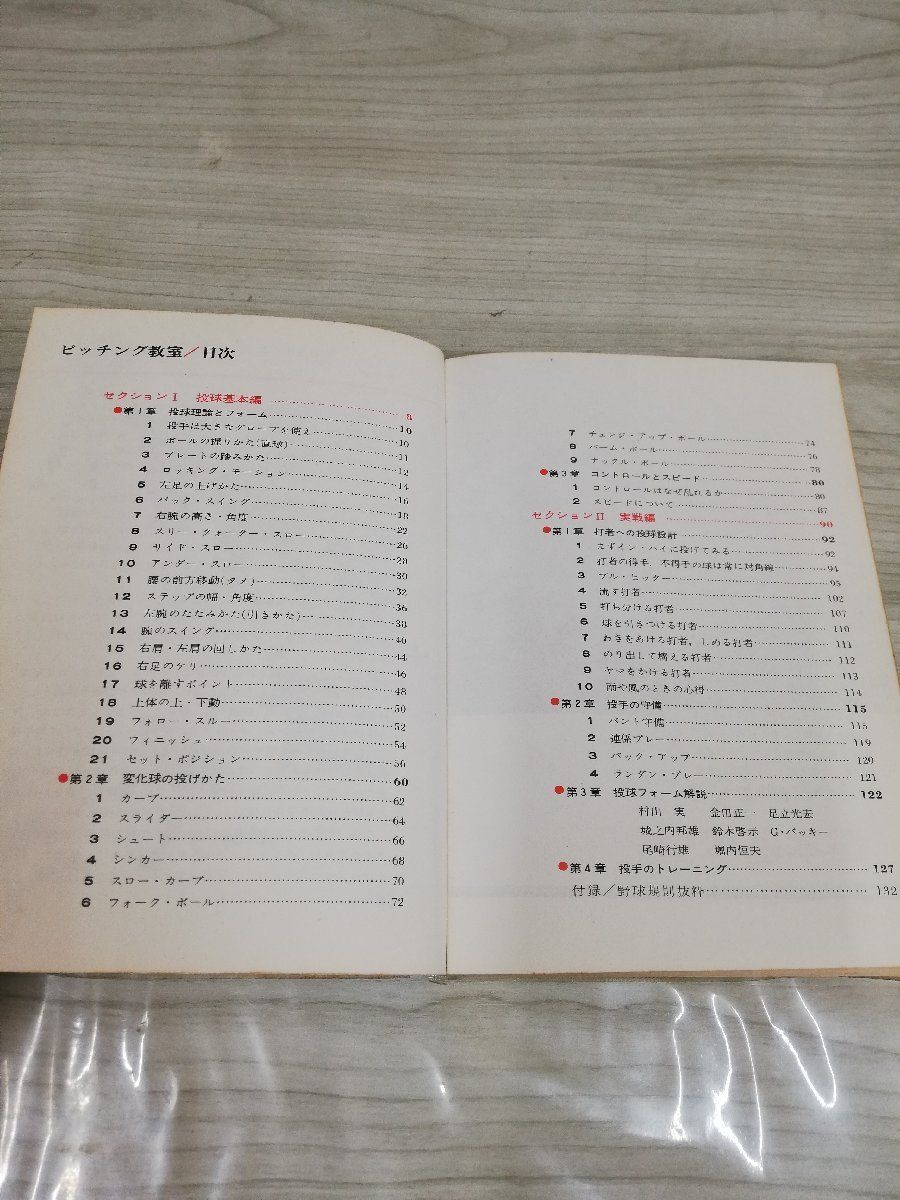 ピッチング教室/目次
セクションI 投球基本編……8
●第1章 投球理論とフォーム……10
1 投手は大きなグローブを使え……10
2 ボールの握りかた(直球)……11
3 プレートの踏みかた……12
4 ロッキング・モーション……14
5 左足の上げかた……16
6 バック・スイング……18
7 右腕の高さ・角度……22
8 スリー・クォーター・スロー……26
9 サイド・スロー……28
10 アンダー・スロー……30
11 腰の前方移動(タメ)……32
12 ステップの幅・角度……36
13 左腕のたたみかた(引きかた)……38
14 腕のスイング……40
15 右肩・左肩の回しかた……44
16 右足のケリ……46
17 球を離すポイント……48
18 上体の上・下動……50
19 フォロー・スルー……52
20 フィニッシュ……54
21 セット・ポジション……56
●第2章 変化球の投げかた……60
1 カーブ……62
2 スライダー……64
3 シュート……66
4 シンカー……68
5 スロー・カーブ……70
6 フォーク・ボール……72
7 チェンジ・アップ・ボール……74
8 パーム・ボール……76
9 ナックル・ボール……78
●第3章 コントロールとスピード……80
1 コントロールはなぜ乱れるか……80
2 スピードについて……87
セクションII 実戦編……90
●第1章 打者への投球設計……92
1 まずイン・ハイに投げてみる……92
2 打者の得手,不得手の球は常に対角線……94
3 プル・ヒッター……95
4 流す打者……102
5 打ち分ける打者……107
6 球を引きつける打者……110
7 わきをあける打者,しめる打者……111
8 のり出して構える打者……112
9 ヤマをかける打者……113
10 雨や風のときの心得……114
●第2章 投手の守備……115
1 バント守備……115
2 連係プレー……119
3 バック・アップ……120
4 ランダン・プレー……121
●第3章 投球フォーム解説……122
村山 実 金田正一 足立光宏
城之内邦雄 鈴木啓示 G・バッキー
尾崎行雄 堀内恒夫
●第4章 投手のトレーニング……127
付録/野球規則抜粋……132